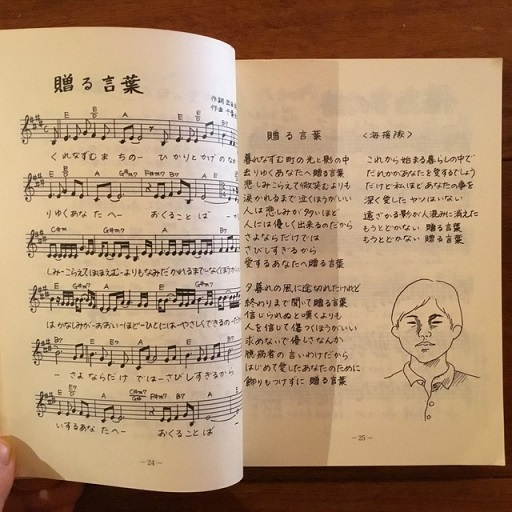 贈る言葉
作詞 武田
作曲 千葉
E B/D A E E B/D A
くれなずむ まちのー ひかりとかげのなか
りゆくあな たへー おくることば ー
しみーこらえてほほえむーよりもなみだかれるまでーなくほうが
はかなしみがーおおいーほどーひとにはーやさしくできるのーだ
ー さよならだけ ではーさびしすぎるから
いするあな たへー おくることば
－24－
贈る言葉 〈海援隊〉
暮れなずむ町の光と影の中
去りゆくあなたへ贈る言葉
悲しみこらえて微笑むよりも
涙かれるまで泣くほうがいい
人は悲しみが多いほど
人には優しく出来るのだから
さよならだけでは
さびしすぎるから
愛するあなたへ贈る言葉
夕暮れの風に途切れたけれど
終わりまで聞いて贈る言葉
信じられぬと嘆くよりも
人を信じて傷つくほうがいい
求めないで優しさなんか
臆病者の言いわけだから
はじめて愛したあなたのために
飾りもつけずに贈る言葉
これから始まる暮らしの中で
だれかがあなたを愛するでしょう
だけど私ほどあなたの事を
深く愛したヤツはいない
遠ざかる影が人混みに消えた
もうとどかない 贈る言葉
もうとどかない 贈る言葉
－25－